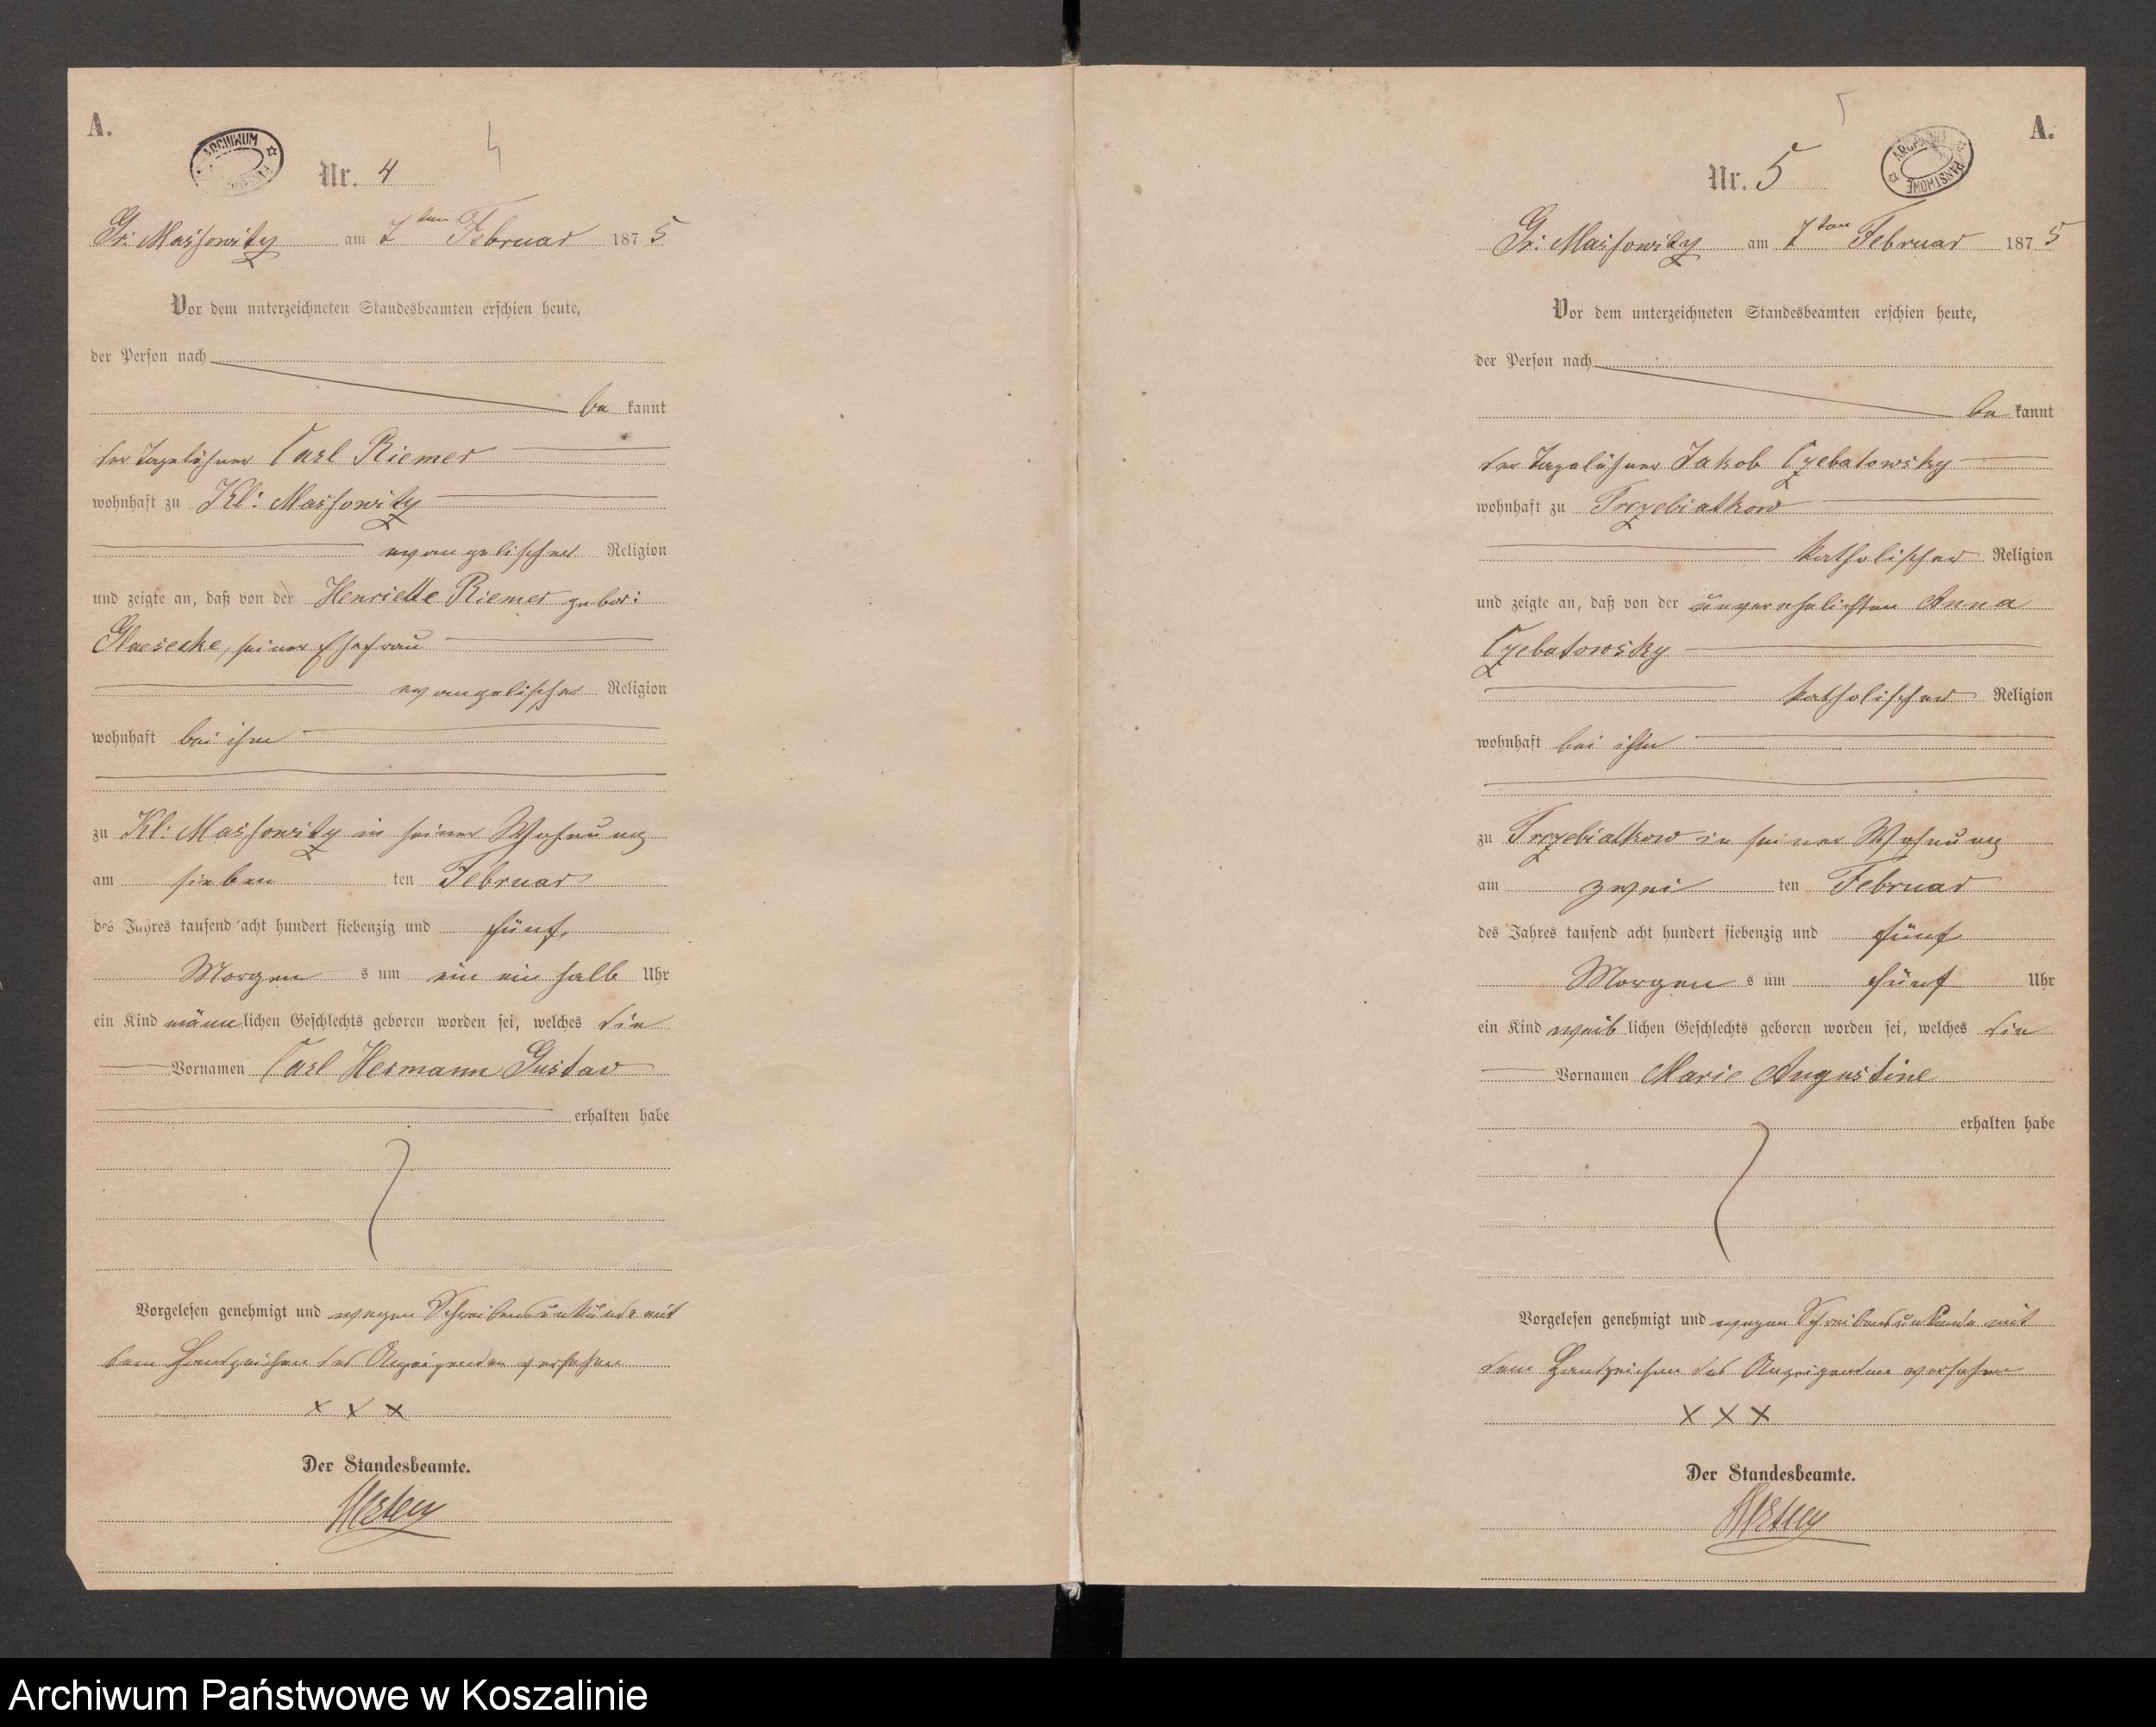 A.
ARCHIWUM
Nr. 4
4
Gr: Massowitz am 7ten Februar 1875
Vor dem unterzeichneten Standesbeamten erschien heute,
der Person nach
be kannt
der Tagelöhner Carl Riemer
wohnhaft zu Kl: Massowitz
evangelischer Religion
und zeigte an, daß von der Henriette Riemer gebor:
seiner Ehefrau
evangelischer Religion
wohnhaft bei ihm
zu Kl: Massowitz in seiner Wohnung
am sieben ten Februar
des Jahres tausend acht hundert siebenzig und fünf,
Morgen s um ein ein halb Uhr
ein Kind männlichen Geschlechts geboren worden sei, welches die
Vornamen Carl Hermann Gustav
erhalten habe
Vorgelesen genehmigt und wegen Schreibensunkunde mit
dem Handzeichen des Anzeigenden versehen
x x x
Der Standesbeamte.
A.
ARCHIWUM PAŃSTWOWE
5
Nr. 5
Gr: Massowitz am 7ten Februar 1875
Vor dem unterzeichneten Standesbeamten erschien heute,
der Person nach
be kannt
der Tagelöhner Jakob Czebatowsky
wohnhaft zu Trzebiatkow
katholischer Religion
und zeigte an, daß von der unverehelichten Anna
Czebatowsky
katholischer Religion
wohnhaft bei ihm
zu Trzebiatkow in seiner Wohnung
am zwei ten Februar
des Jahres tausend acht hundert siebenzig und fünf
Morgen s um fünf Uhr
ein Kind weiblichen Geschlechts geboren worden sei, welches die
Vornamen Marie Augustine
erhalten habe
Vorgelesen genehmigt und wegen Schreibensunkunde mit
dem Handzeichen des Anzeigenden versehen
x x x
Der Standesbeamte.
Archiwum Państwowe w Koszalinie